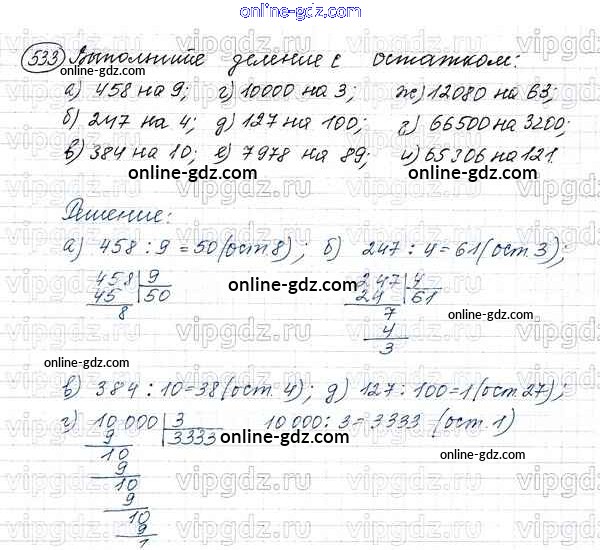 online-gdz.com
533 Выполните деление с остатком:
online-gdz.com
а) 458 на 9; г) 10000 на 3; ж) 12080 на 63;
б) 247 на 4; д) 127 на 100; з) 66500 на 3200;
в) 384 на 10; е) 7978 на 89; и) 65306 на 121.
online-gdz.com online-gdz.com
vipgdz.ru vipgdz.ru
Решение:
а) 458 : 9 = 50 (ост. 8); б) 247 : 4 = 61 (ост. 3);
458 9 247 4
45 50 24 61
8 7
4
3
online-gdz.com
online-gdz.com
online-gdz.com online-gdz.com
в) 384 : 10 = 38 (ост. 4); д) 127 : 100 = 1 (ост. 27);
г) 10 000 3 10 000 : 3 = 3333 (ост. 1)
9 3333
online-gdz.com online-gdz.com
10
9
10
9
10
9
1